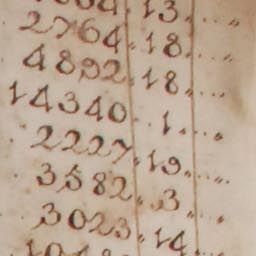 13....„
2764.18....„
4892.18....„
14340..1....„
2227.19....„
3582.3....„
3023.14....„